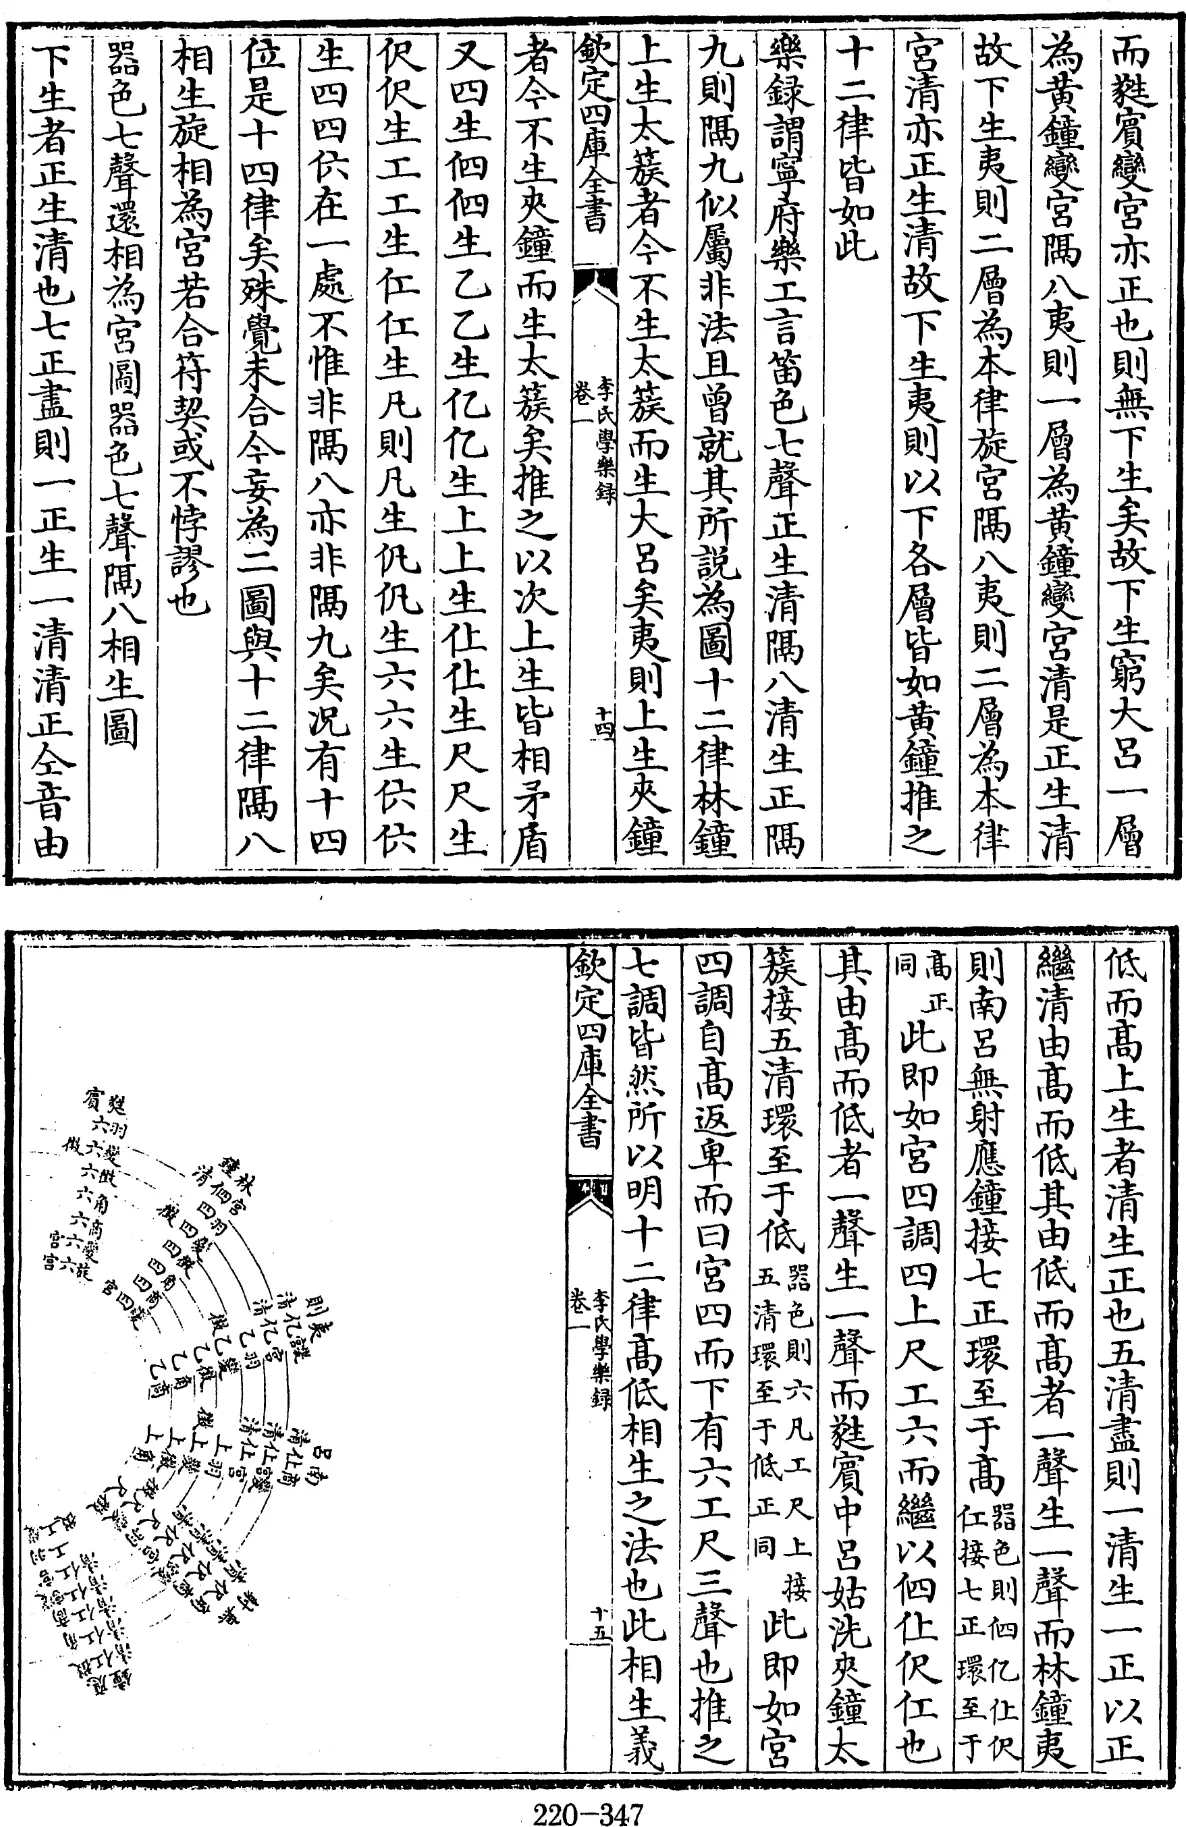 而蕤賓變宮亦正也則無下生矣故下生窮大呂一層
為黄鐘變宮隔八夷則一層為黄鐘變宮清是正生清
故下生夷則二層為本律旋宮隔八夷則二層為本律
宮清亦正生清故下生夷則以下各層皆如黄鐘推之
十二律皆如此
樂録謂寧府樂工言笛色七聲正生清隔八清生正隔
九則隔九似屬非法且曾就其所説為圖十二律林鐘
上生太簇者今不生太簇而生大呂矣夷則上生夾鐘
欽定四庫全書
李氏學樂録
卷一
十四
者今不生夾鐘而生太簇矣推之以次上生皆相矛盾
又四生伵伵生乙乙生亿亿生上上生仩仩生尺尺生
伬伬生工工生仜仜生凡則凡生㐸㐸生六六生㐲㐲
生四四㐲在一處不惟非隔八亦非隔九矣况有十四
位是十四律矣殊覺未合今妄為二圖與十二律隔八
相生旋相為宮若合符契或不悖謬也
器色七聲還相為宮圖器色七聲隔八相生圖
下生者正生清也七正盡則一正生一清清正仝音由
低而髙上生者清生正也五清盡則一清生一正以正
繼清由髙而低其由低而髙者一聲生一聲而林鐘夷
則南呂無射應鐘接七正環至于髙器色則伵亿仩伬仜接七正環至于
髙正同此即如宮四調四上尺工六而繼以伵仩伬仜也
其由髙而低者一聲生一聲而蕤賓中呂姑洗夾鐘太
簇接五清環至于低器色則六凡工尺上接五清環至于低正同此即如宮
四調自髙返卑而曰宮四而下有六工尺三聲也推之
七調皆然所以明十二律髙低相生之法也此相生義
欽定四庫全書
李氏學樂録
卷一
十五
蕤賓
羽六
變徵六
徵六
角六
商六
變宮六
林鐘
宮清伵
羽四
變徵四
徵四
角四
商四
變宮四
夷則
變清亿
宮清亿
羽乙
變徵乙
徵乙
角乙
商乙
南呂
商清仩
變清仩
宮清仩
羽上
變徵上
徵上
角上
無射
應鐘
220-347